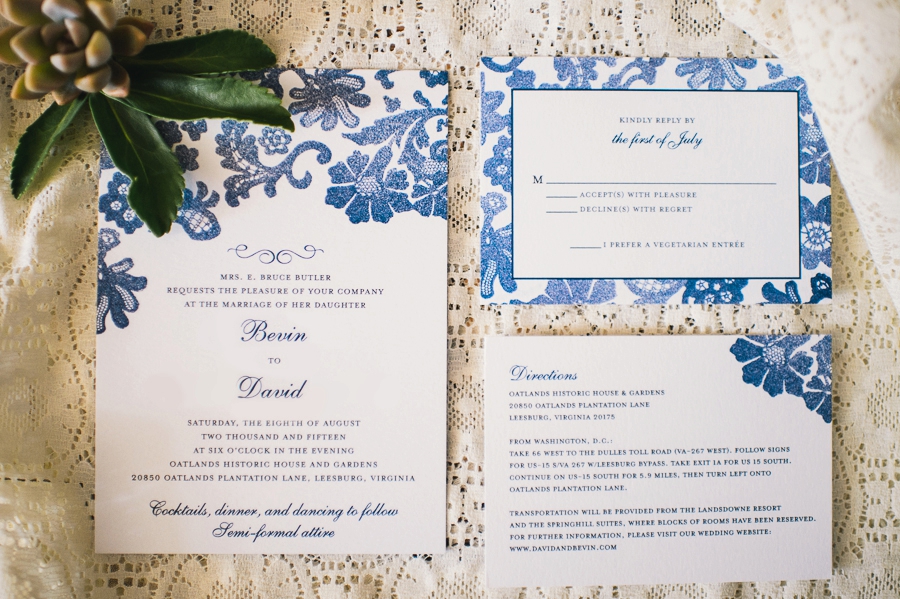 MRS. E. BRUCE BUTLER
REQUESTS THE PLEASURE OF YOUR COMPANY
AT THE MARRIAGE OF HER DAUGHTER
Bevin
TO
David
SATURDAY, THE EIGHTH OF AUGUST
TWO THOUSAND AND FIFTEEN
AT SIX O'CLOCK IN THE EVENING
OATLANDS HISTORIC HOUSE AND GARDENS
20850 OATLANDS PLANTATION LANE, LEESBURG, VIRGINIA
Cocktails, dinner, and dancing to follow
Semi-formal attire
KINDLY REPLY BY
the first of July
M
ACCEPT(S) WITH PLEASURE
DECLINE(S) WITH REGRET
I PREFER A VEGETARIAN ENTRÉE
Directions
OATLANDS HISTORIC HOUSE & GARDENS
20850 OATLANDS PLANTATION LANE
LEESBURG, VIRGINIA 20175
FROM WASHINGTON, D.C.:
TAKE 66 WEST TO THE DULLES TOLL ROAD (VA-267 WEST). FOLLOW SIGNS
FOR US-15 S/VA 267 W/LEESBURG BYPASS. TAKE EXIT 1A FOR US 15 SOUTH.
CONTINUE ON US-15 SOUTH FOR 5.9 MILES, THEN TURN LEFT ONTO
OATLANDS PLANTATION LANE.
TRANSPORTATION WILL BE PROVIDED FROM THE LANDSDOWNE RESORT
AND THE SPRINGHILL SUITES, WHERE BLOCKS OF ROOMS HAVE BEEN RESERVED.
FOR FURTHER INFORMATION, PLEASE VISIT OUR WEDDING WEBSITE:
WWW.DAVIDANDBEVIN.COM